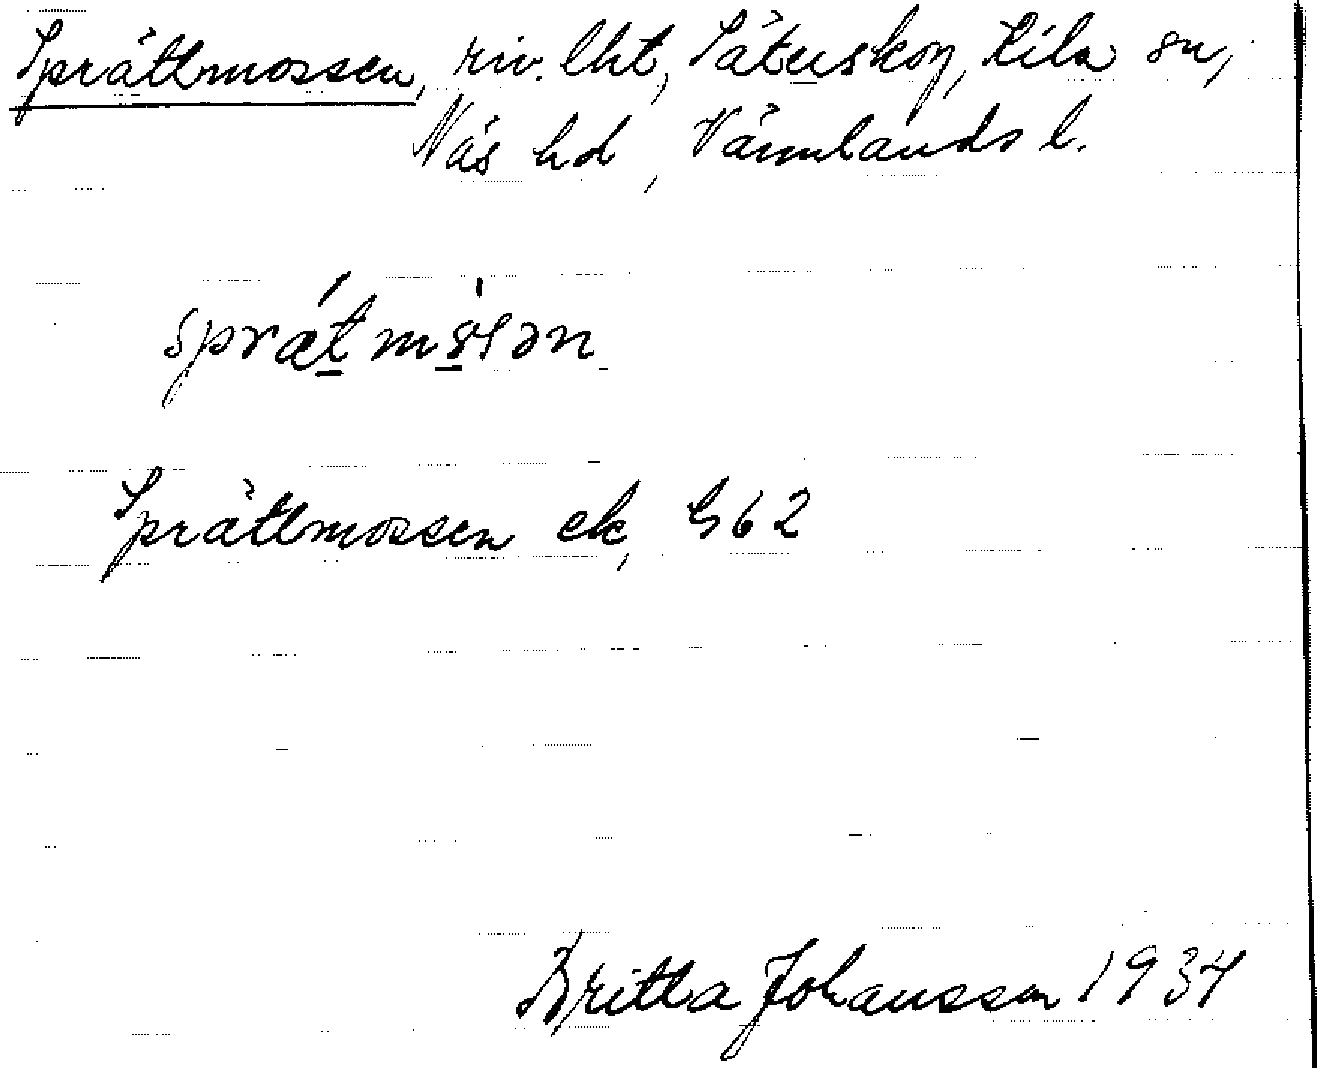 Sprättmossen, riv. lht, Sätuskog, Kila sn,
Näs hd, Värmlands l.
Sprättmossen ek, G62
Britta Johansson 1934